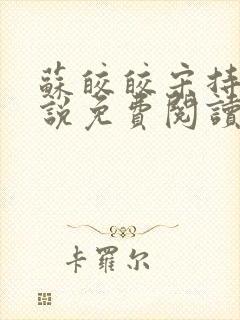 蘇皎皎宋持
說免費閱讀
卡羅尔